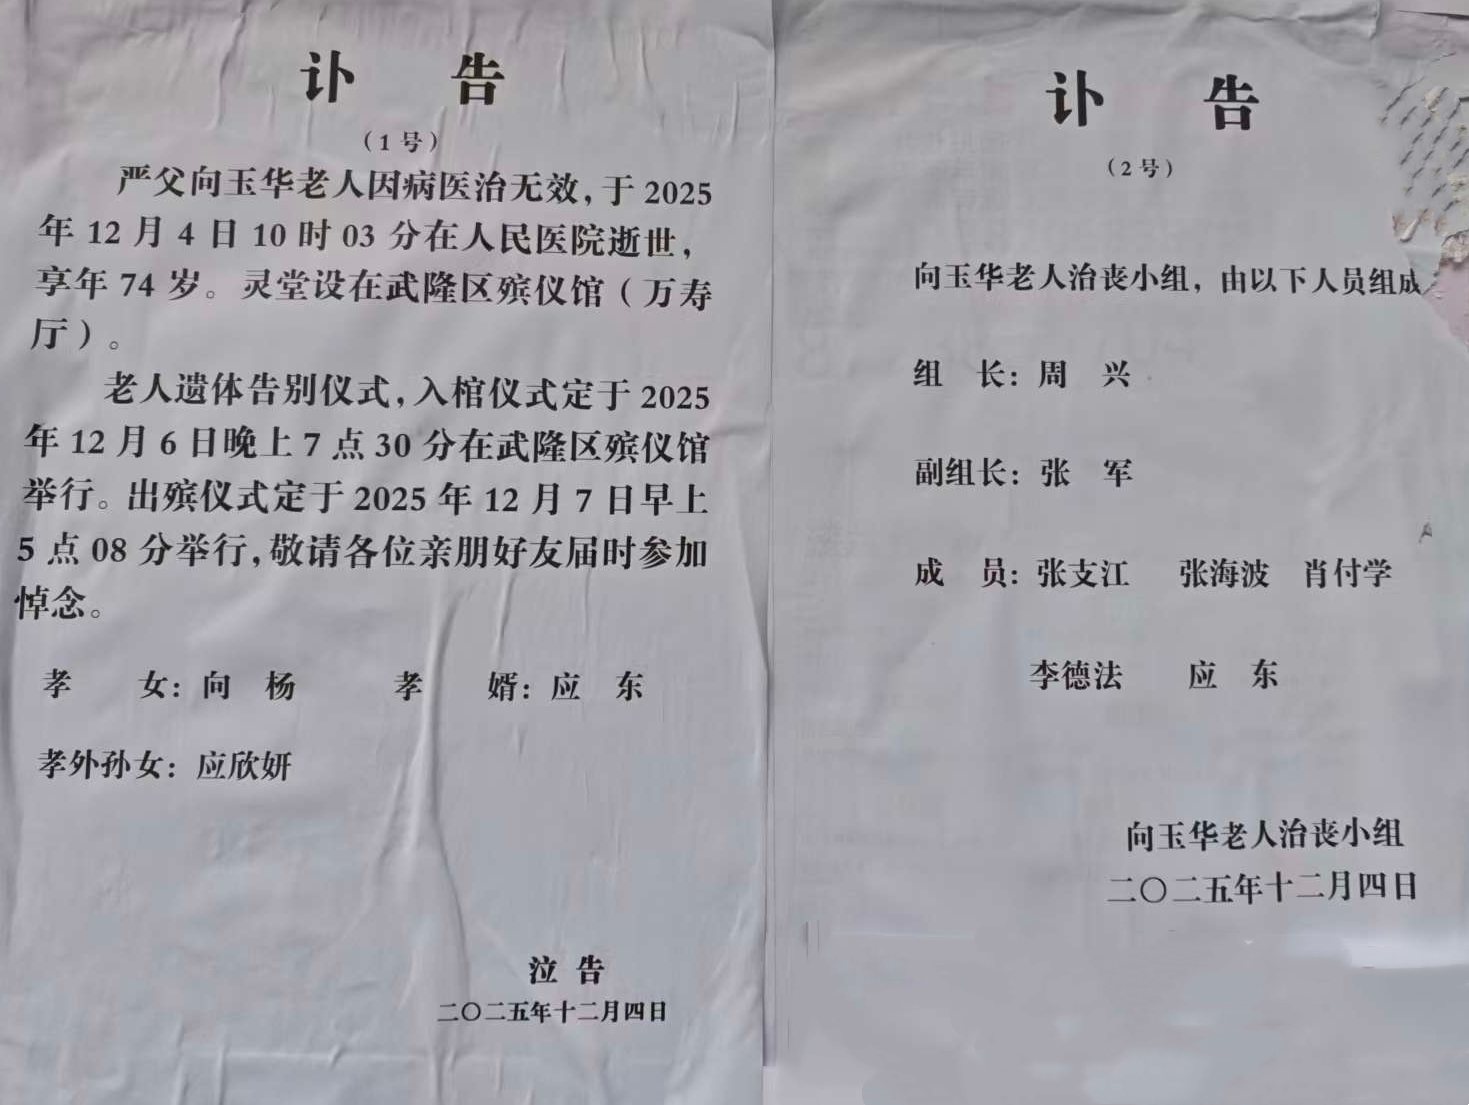 讣 告
（1号）
严父向玉华老人因病医治无效，于 2025
年 12 月 4 日 10 时 03 分在人民医院逝世，
享年 74 岁。灵堂设在武隆区殡仪馆（万寿
厅）。
老人遗体告别仪式，入棺仪式定于 2025
年 12 月 6 日晚上 7 点 30 分在武隆区殡仪馆
举行。出殡仪式定于 2025 年 12 月 7 日早上
5 点 08 分举行，敬请各位亲朋好友届时参加
悼念。
孝 女：向 杨 孝 婿：应 东
孝外孙女：应欣妍
泣 告
二〇二五年十二月四日
讣 告
（2号）
向玉华老人治丧小组，由以下人员组成
组 长：周 兴
副组长：张 军
成 员：张支江 张海波 肖付学
李德法 应 东
向玉华老人治丧小组
二〇二五年十二月四日